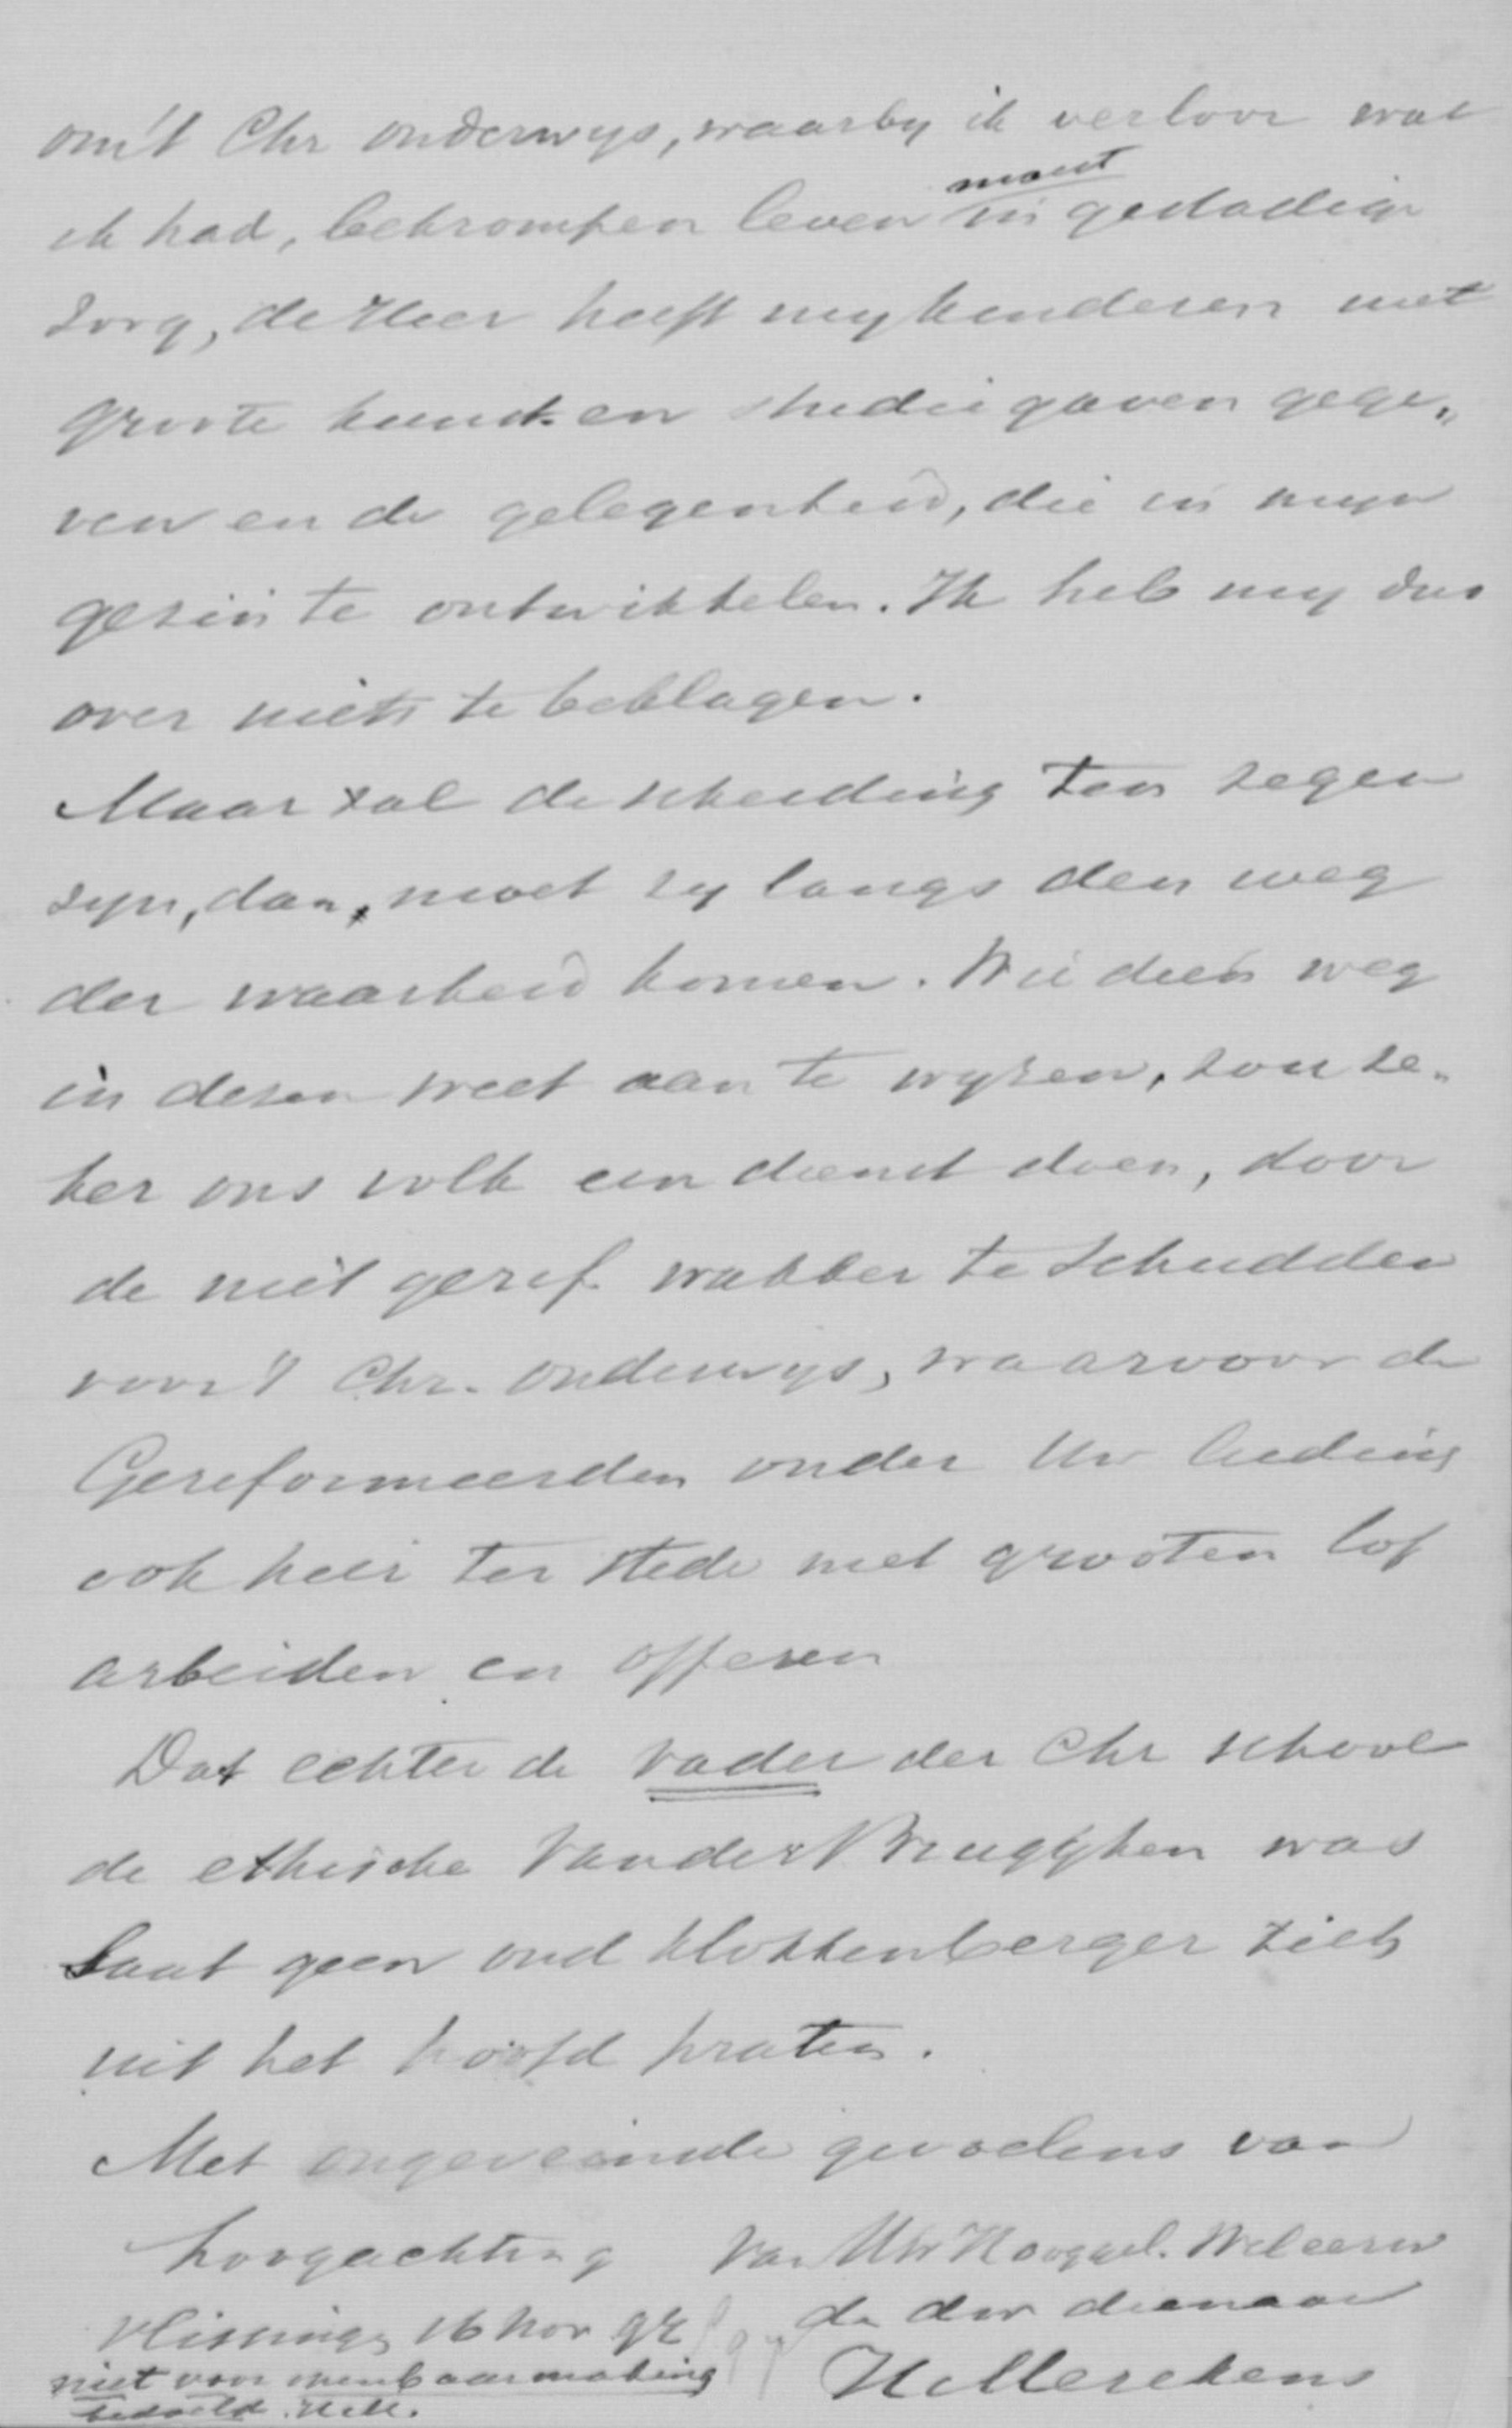 om 't Chr onderwys, waarby ik verloor wat
moest
ik had, bekrompen leven in gestadige
zorg, de Heer heeft myn kinderen met
groote kunst en studiegaven gege„
ven en de gelegenheid, die in myn
gezin te ontwikkelen. Ik heb my dus
over niets te beklagen.
Maar zal de scheiding ten zegen
zyn, dan, moet zy langs den weg
der waarheid komen. Wie dien weg
in dezen weet aan te wyzen, zou ze„
ker ons volk een dienst doen, door
de niet geref. wakker te schudden
voor 't Chr. onderwys, waarvoor de
Gereformeerden onder Uw leiding
ook hier ter stede met grooten lof
arbeiden en offeren
Dat echter de vader der Chr school
de ethische Van der Brugghen was
laat geen oud Klokkenberger zich
uit het hoofd praten.
Met ongeveinsde gevoelens van
hoogachting Van Uw Hooggel. Weleerw
de dw dienaar
Vlissingen 16 Nov 92
Hellerekens
niet voor openbaarmaking
bedoeld. Hell.